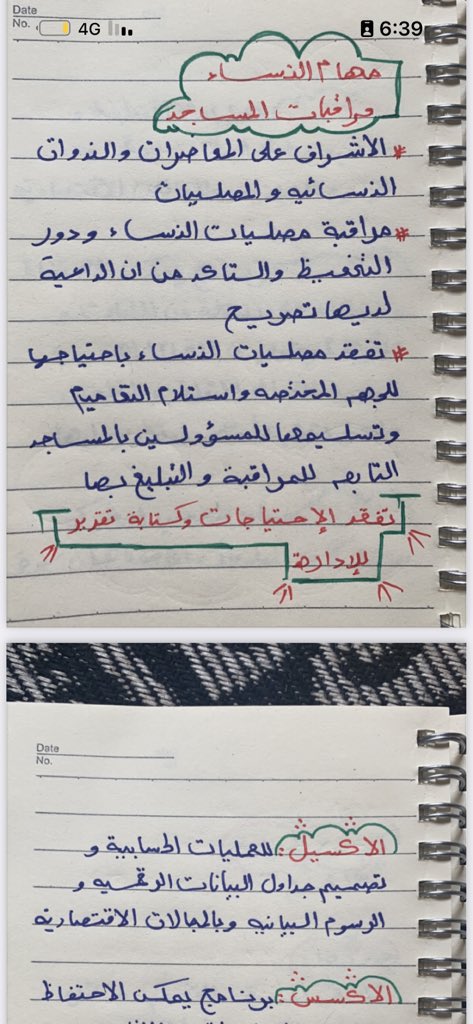 4G 6:39
Date
No.
مهام النساء
مراقبات المساجد
* الاشراف على المحاضرات والندوات
النسائيه و المصليات
* مراقبة مصليات النساء ودور
التحفيظ والتاكد من ان الداعية
لديها تصريح
* تفقد مصليات النساء باحتياجها
للجهه المختصه واستلام التعاميم
وتسليمها للمسؤولين بالمساجد
التابعه للمراقبة و التبليغ بها
تفقد الإحتياجات وكتابة تقرير
للإدارة
Date
No.
الاكسيل: للعمليات الحسابية و
تصميم جداول البيانات الرقميه و
الرسوم البيانيه وبالمجالات الاقتصادية
الاكسس: برنامج يمكن الاحتفاظ